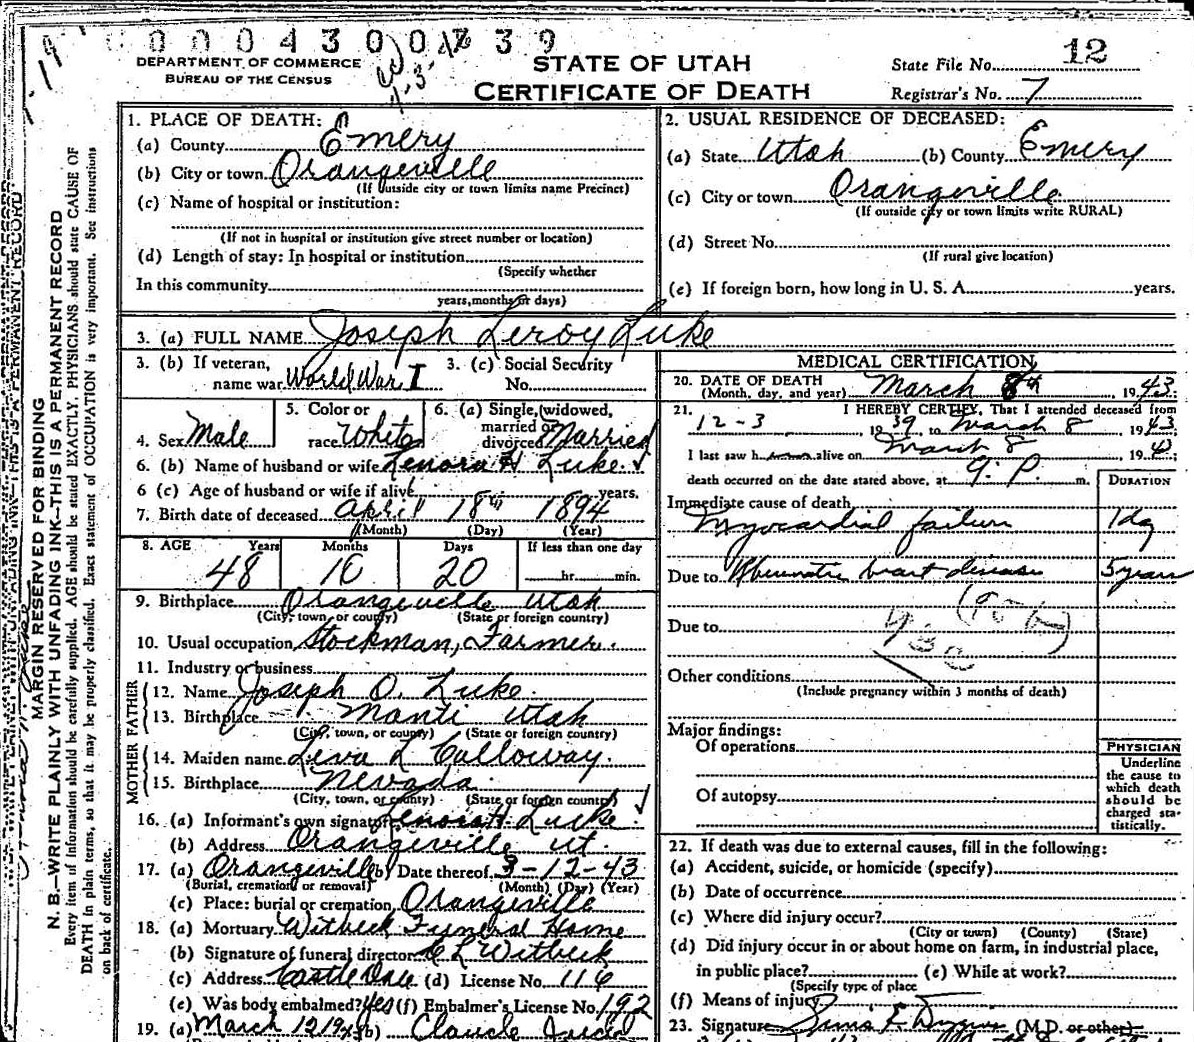 0004300 39
DEPARTMENT OF COMMERCE
BUREAU OF THE CENSUS
STATE OF UTAH
CERTIFICATE OF DEATH
State File No. 12
Registrar's No. 7
MARGIN RESERVED FOR BINDING
N. B.—WRITE PLAINLY WITH UNFADING INK—THIS IS A PERMANENT RECORD
Every item of information should be carefully supplied. AGE should be stated EXACTLY. PHYSICIANS should state CAUSE OF
DEATH in plain terms, so that it may be properly classified. Exact statement of OCCUPATION is very important. See instructions
on back of certificate.
1. PLACE OF DEATH:
(a) County Emery
(b) City or town Orangeville
(If outside city or town limits name Precinct)
(c) Name of hospital or institution:
(If not in hospital or institution give street number or location)
(d) Length of stay: In hospital or institution
(Specify whether
In this community
years, months or days)
2. USUAL RESIDENCE OF DECEASED:
(a) State Utah (b) County Emery
(c) City or town Orangeville
(If outside city or town limits write RURAL)
(d) Street No.
(If rural give location)
(e) If foreign born, how long in U. S. A. years.
3. (a) FULL NAME Joseph Leroy Luke
3. (b) If veteran, name war World War I 3. (c) Social Security No.
4. Sex Male 5. Color or race White 6. (a) Single, widowed, married or divorced Married
6. (b) Name of husband or wife Lenora H Luke
6 (c) Age of husband or wife if alive years.
7. Birth date of deceased April 18th 1894
(Month) (Day) (Year)
8. AGE Years Months Days If less than one day
48 10 20 hr. min.
9. Birthplace Orangeville Utah
(City, town, or county) (State or foreign country)
10. Usual occupation Stockman, Farmer.
11. Industry or business
FATHER
12. Name Joseph O. Luke.
13. Birthplace Manti Utah
(City, town, or county) (State or foreign country)
MOTHER
14. Maiden name Leva L Calloway.
15. Birthplace Nevada.
(City, town, or county) (State or foreign country)
16. (a) Informant's own signature Lenora H. Luke
(b) Address Orangeville Ut.
17. (a) Orangeville (b) Date thereof 3-12-43
(Burial, cremation or removal) (Month) (Day) (Year)
(c) Place: burial or cremation Orangeville
18. (a) Mortuary Witbeck Funeral Home
(b) Signature of funeral director C L Witbeck
(c) Address Castle Dale (d) License No. 116
(e) Was body embalmed? Yes (f) Embalmer's License No. 192
19. (a) March 12 1943 (b) Claude
MEDICAL CERTIFICATION
20. DATE OF DEATH March 8th 1943.
(Month, day, and year)
21. I HEREBY CERTIFY, That I attended deceased from
12-3 1939 to March 8 1943.
I last saw h alive on March 8 1943;
death occurred on the date stated above, at 9. P. m. DURATION
Immediate cause of death
Myocardial failure 1 dy
Due to Rheumatic heart disease 5 years
Due to
Other conditions
(Include pregnancy within 3 months of death)
Major findings:
Of operations
Of autopsy
PHYSICIAN
Underline
the cause to
which death
should be
charged sta-
tistically.
22. If death was due to external causes, fill in the following:
(a) Accident, suicide, or homicide (specify)
(b) Date of occurrence
(c) Where did injury occur?
(City or town) (County) (State)
(d) Did injury occur in or about home on farm, in industrial place,
in public place? (e) While at work?
(Specify type of place
(f) Means of injury
23. Signature (M.D. or other)